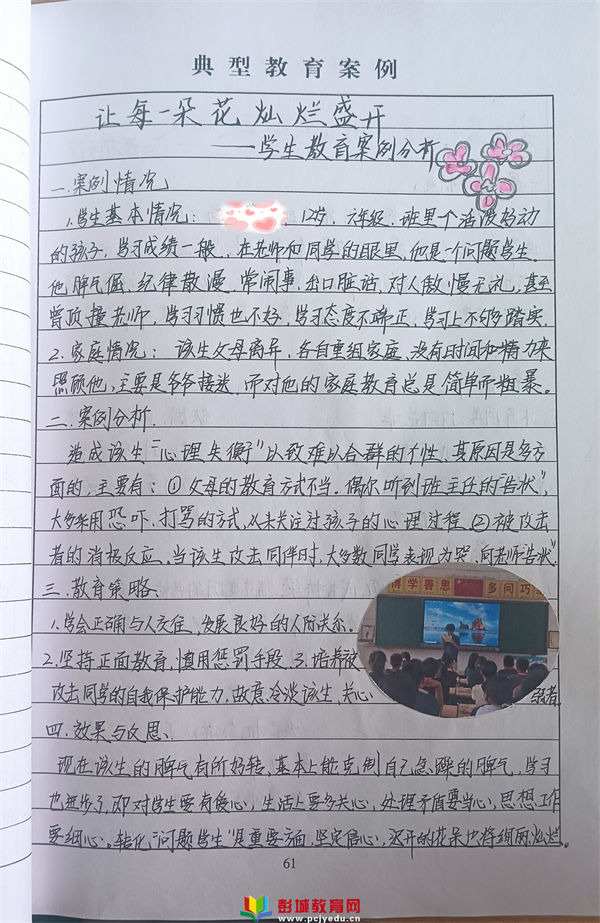 典型教育案例
让每一朵花灿烂盛开
——学生教育案例分析
一.案例情况
1.学生基本情况: ,12岁,六年级.班里个活泼好动
的孩子,学习成绩一般,在老师和同学的眼里,他是一个问题学生.
他脾气倔,纪律散漫,常闹事,出口脏话,对人傲慢无礼,甚至
曾顶撞老师,学习习惯也不好,学习态度不端正,学习上不够踏实.
2.家庭情况: 该生父母离异,各自重组家庭,没有时间和精力来
照顾他,主要是爷爷接送,而对他的家庭教育总是简单而粗暴。
二.案例分析.
造成该生"心理失衡"以致难以合群的个性,其原因是多方
面的,主要有:①父母的教育方式不当.偶尔听到班主任的"告状",
大多采用恐吓、打骂的方式,从未关注过孩子的心理过程②被攻击
者的消极反应。当该生攻击同伴时,大多数同学表现为哭、向老师"告状".
三.教育策略、
1.学会正确与人交往,发展良好的人际关系。
2.坚持正面教育,慎用惩罚手段.3.培养被
攻击同学的自我保护能力.故意冷淡该生,关心
者.
博学善思 多问巧
四.效果与反思、
现在该生的脾气有所好转、基本上能克制自己急躁的脾气,学习
也进步了,即对学生要有爱心,生活上要多关心,处理矛盾要当心,思想工作
要细心。转化"问题学生"是重要方面,坚定信心,迟开的花朵也将绚丽灿烂。
61
彭城教育网
www.pcjyedu.cn